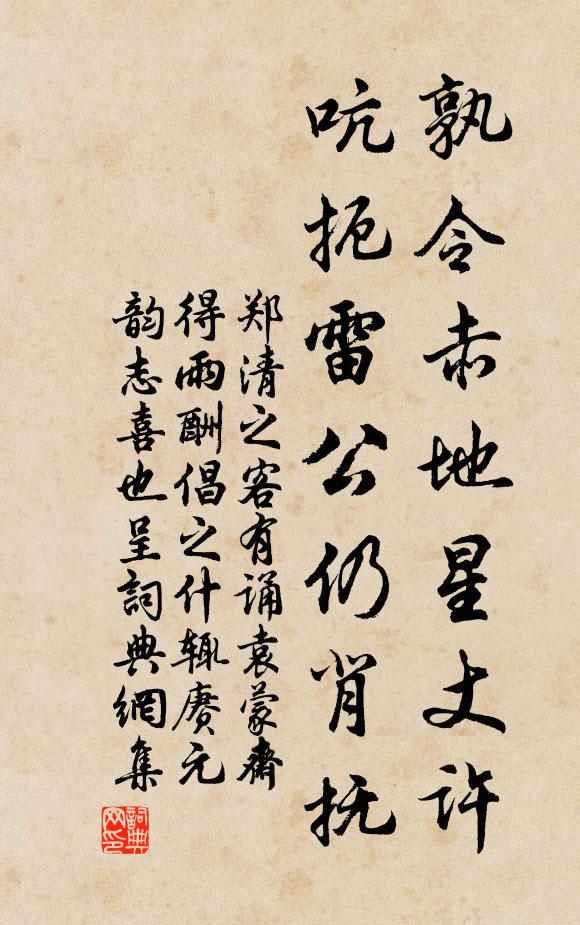 孰令赤地星丈许
吭扼雷公仍背抚
郑清之客有诵袁蒙齋
得雨酬倡之什辄赓元
韵志喜也呈詞典網集
詞典网印